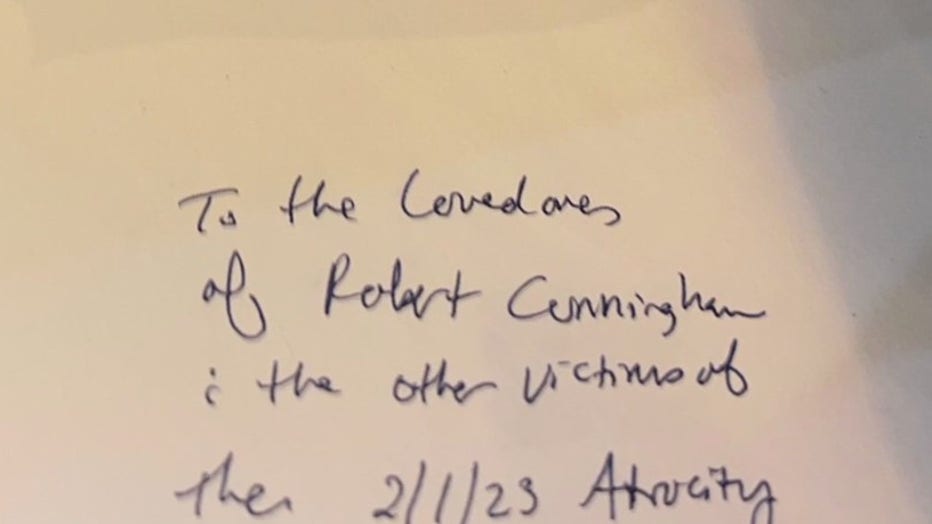 To the Loved ones
of Robert Cunningham
: the other victims of
the 2/1/23 Atrocity